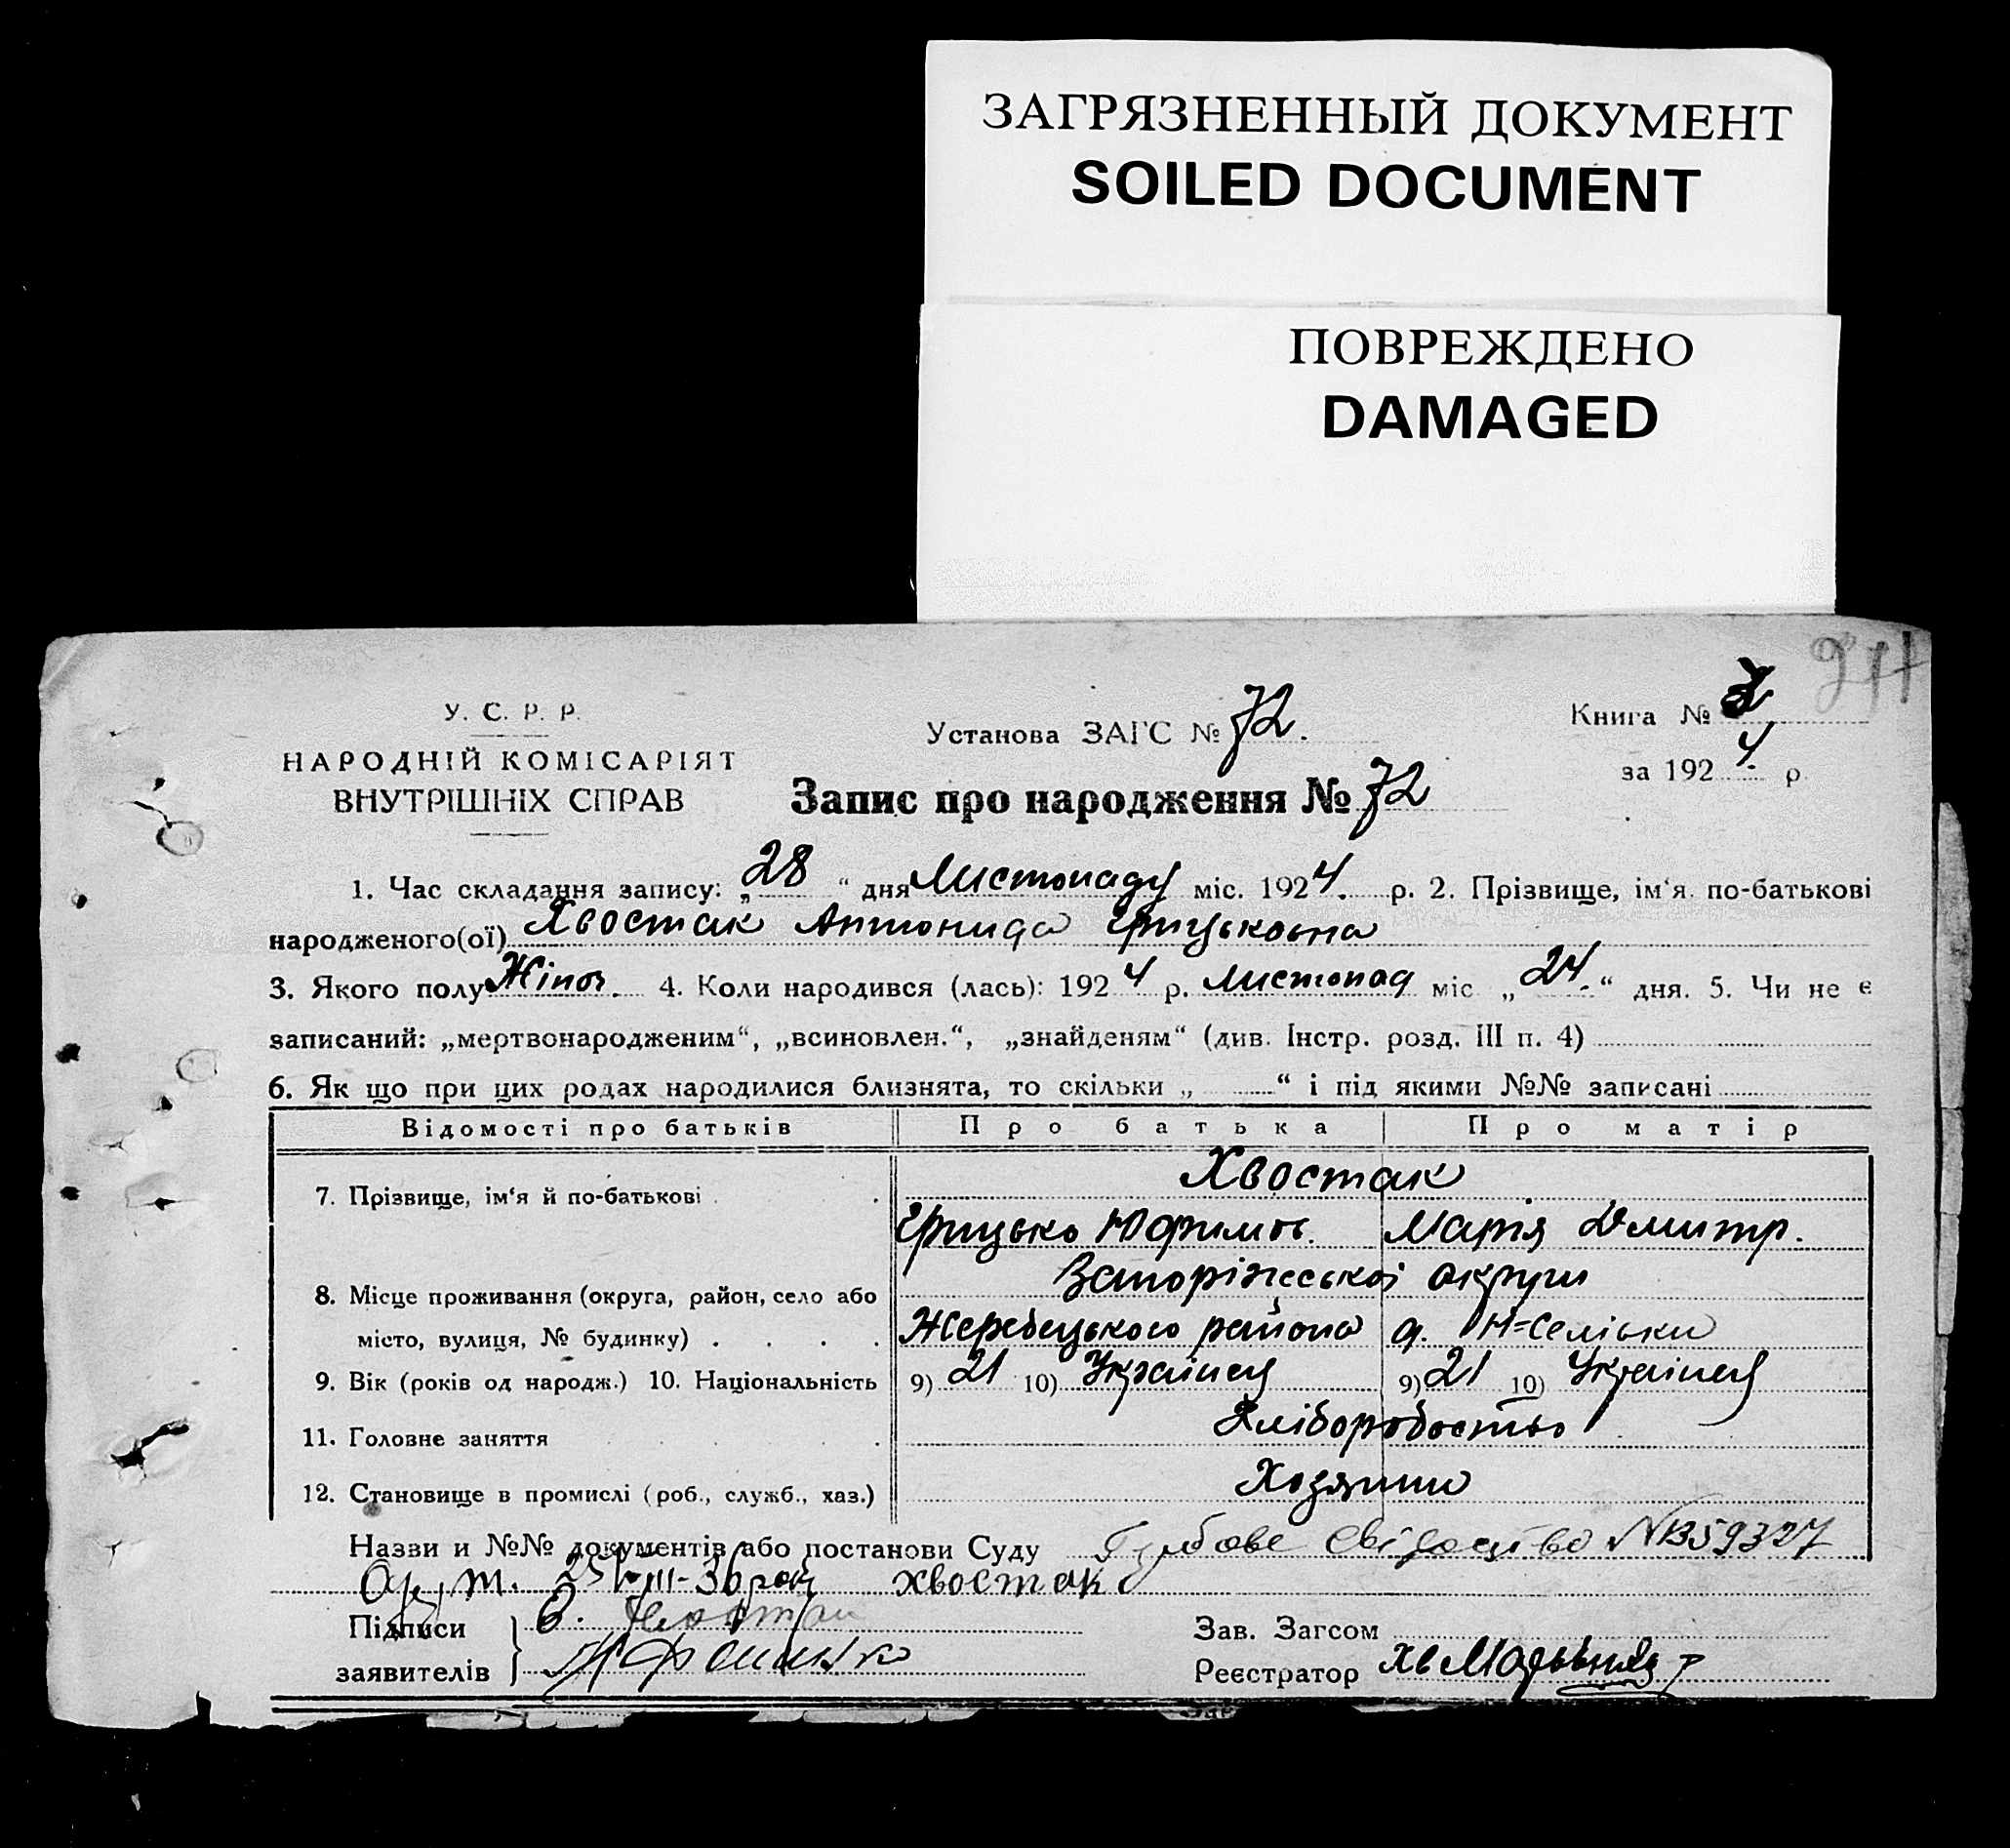 ЗАГРЯЗНЕННЫЙ ДОКУМЕНТ
SOILED DOCUMENT
ПОВРЕЖДЕНО
DAMAGED
У. С. Р. Р.
НАРОДНІЙ КОМІСАРІЯТ
ВНУТРІШНІХ СПРАВ
Установа ЗАГС № 72.
Запис про народження № 72
Книга №
за 1924 р.
1. Час складання запису: „28“ дня Листопаду міс. 1924. р. 2. Прізвище, ім‘я по-батькові
народженого(ої) Хвостак Антонида Грицьковна
3. Якого полу Жіноч. 4. Коли народився (лась): 1924 р. Листопад міс „24.“ дня. 5. Чи не є
записаний: „мертвонародженим“, „всиновлен.“, „знайденям“ (див. Інстр. розд. III п. 4)
6. Як що при цих родах народилися близнята, то скільки „ “ і під якими №№ записані
Відомості про батьків Про батька Про матір
7. Прізвище, ім‘я й по-батькові Хвостак
Грицько Юфимов. Марія Дмитр.
8. Місце проживання (округа, район, село або Запоріжської округи
місто, вулиця, № будинку) Жеребецького района
9. Вік (років од народж.) 10. Національність 9) 21 10) Українец 9) 21 10) Українец
11. Головне заняття Хліборобоство
12. Становище в промислі (роб., служб., хаз.) Хозяини
Назви и №№ документів або постанови Суду Свідоцтво
Хвостак
Підписи
заявителів
Зав. Загсом
Реєстратор